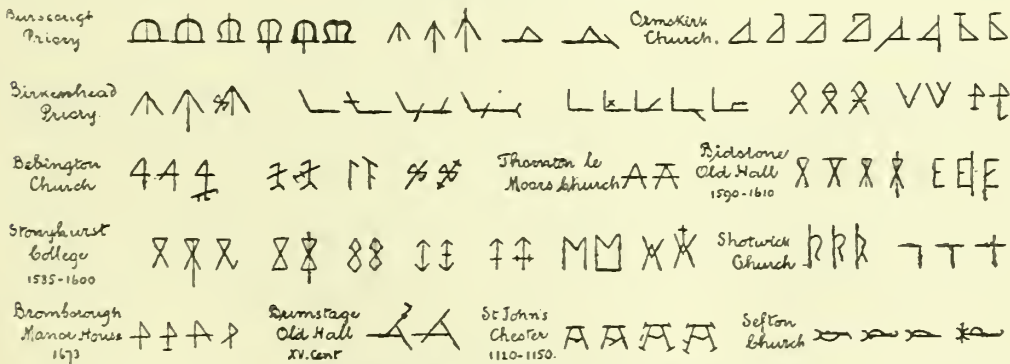 Burscough Priory
Ormskirk Church.
Birkenhead Priory.
Bebington Church
Thornton le Moors Church
Bidstone Old Hall 1590-1610
Stonyhurst College 1535-1600
Shotwick Church
Bromborough Manor House 1673
Brimstage Old Hall XV. Cent
St John's Chester 1120-1150.
Sefton Church